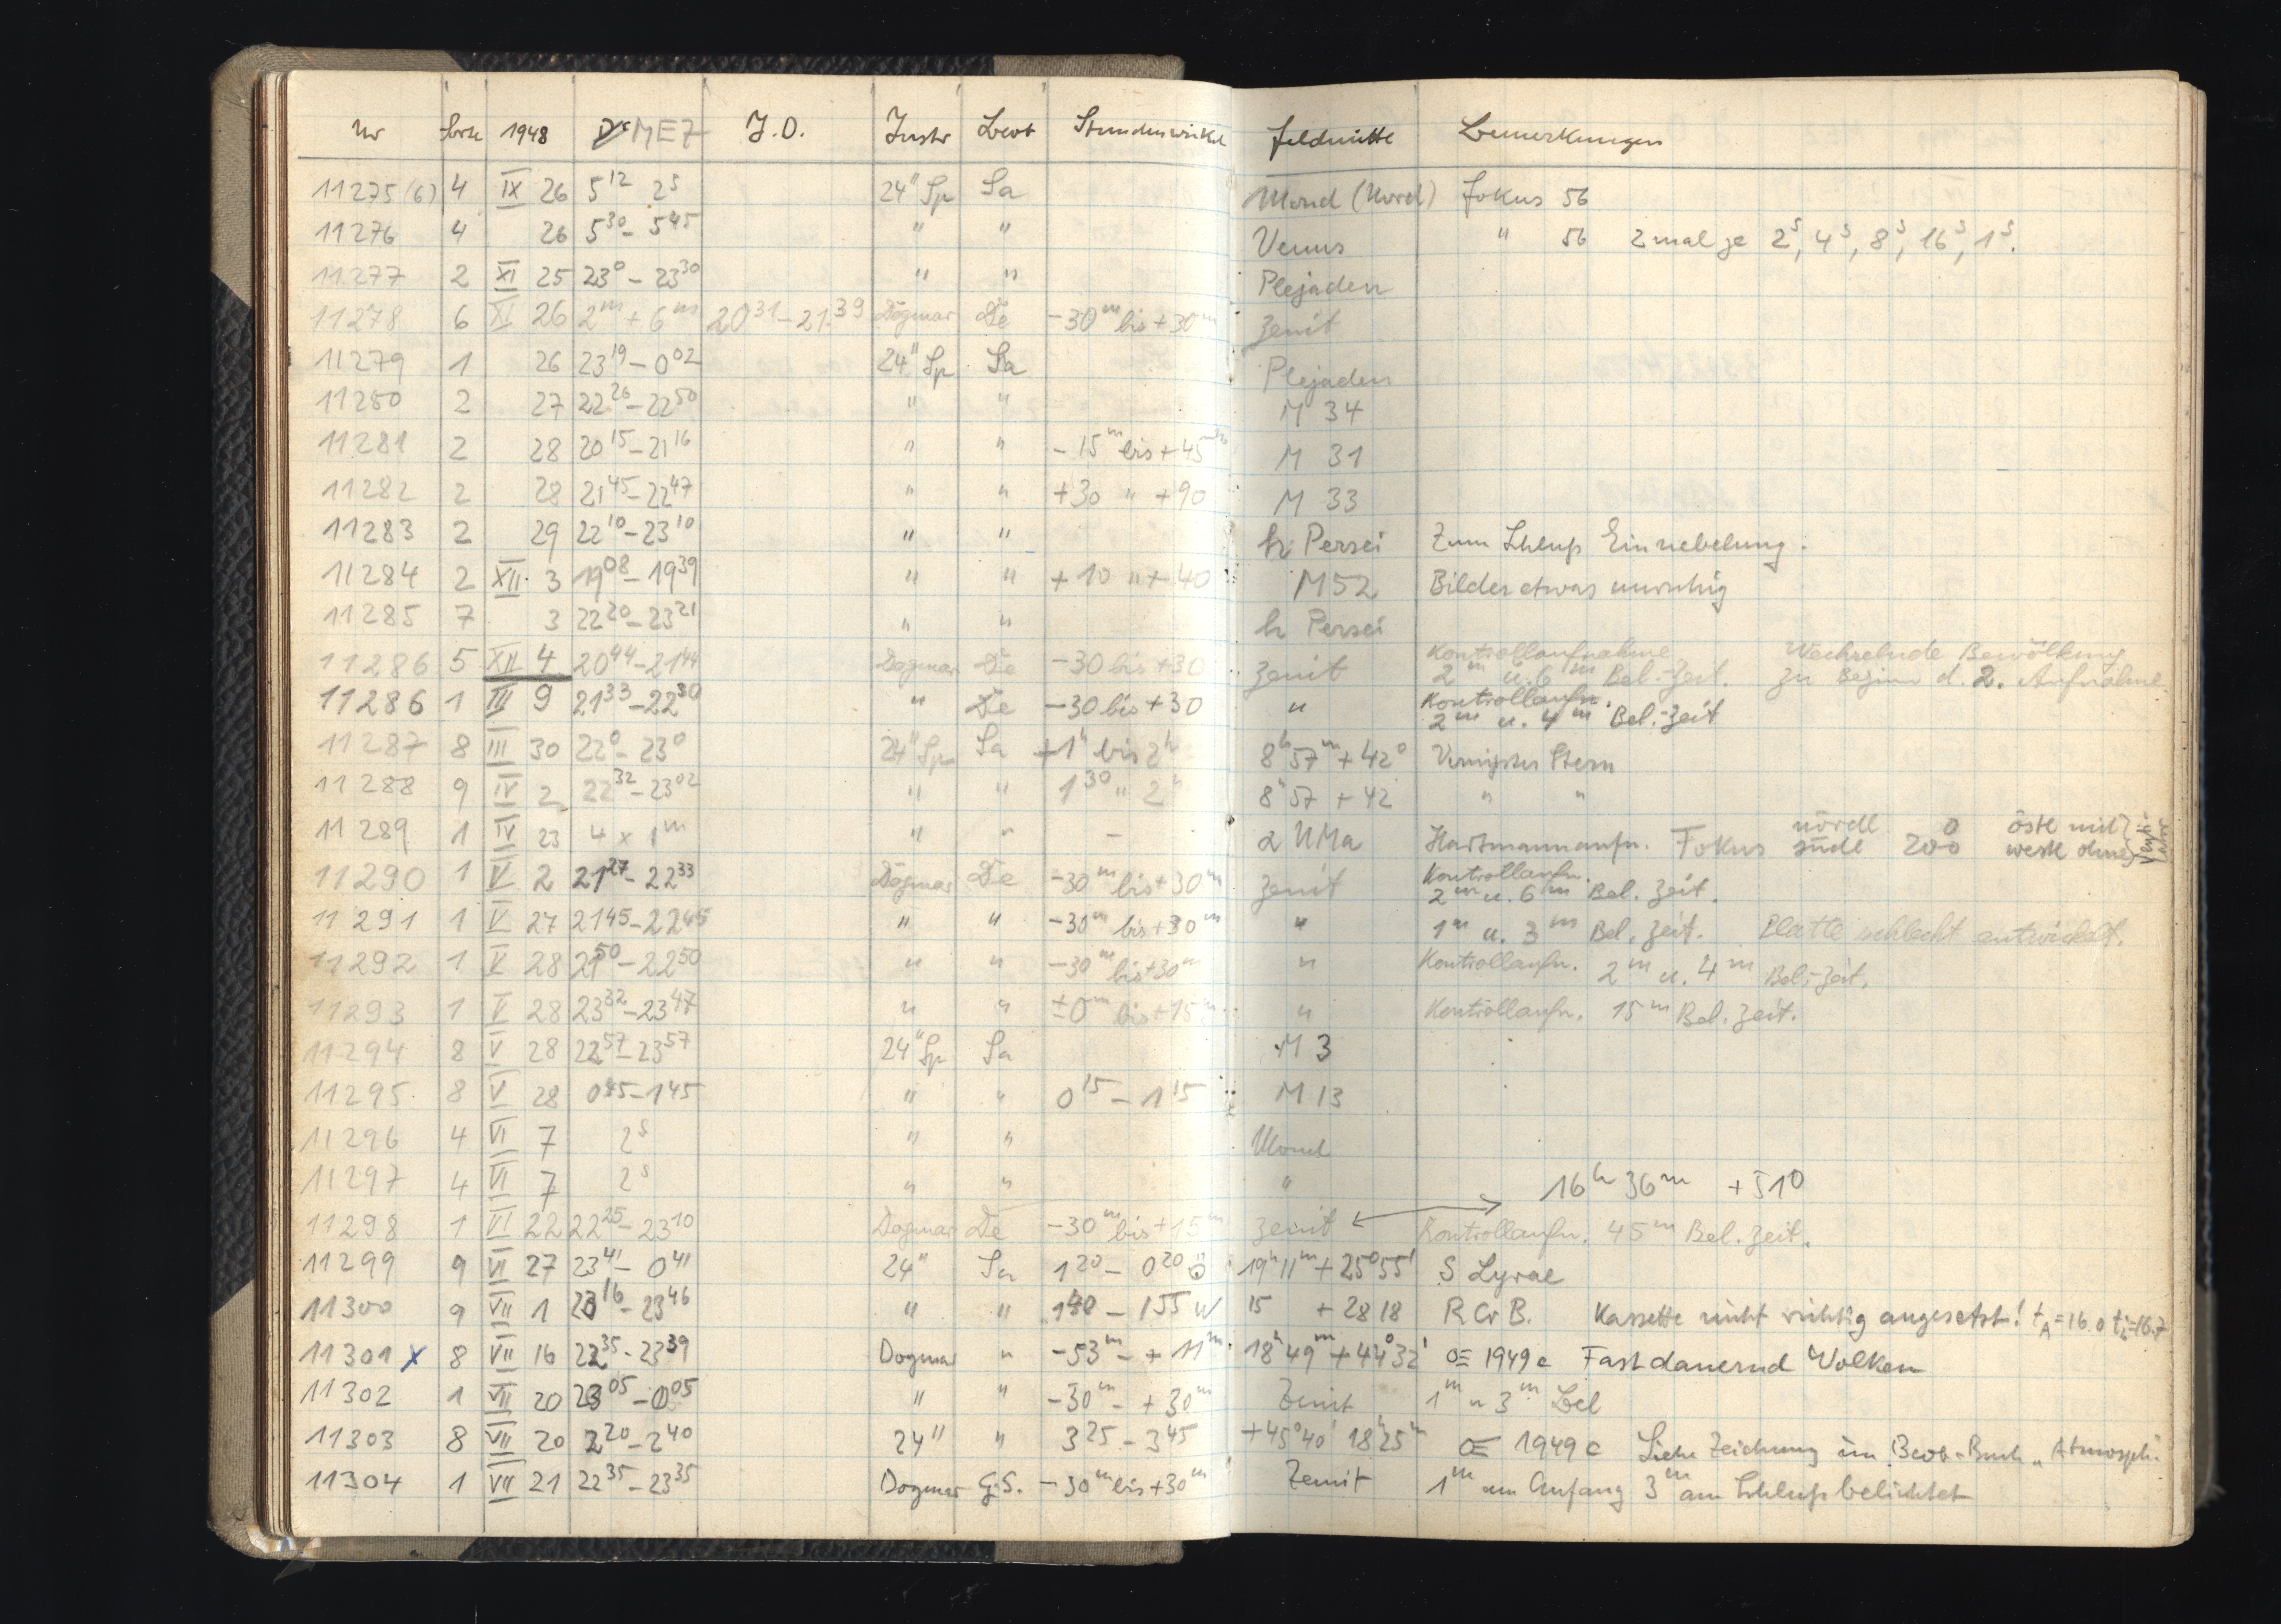 Nr Sorte 1948 MEZ J.D. Instr Beob Stundenwinkel Feldmitte Bemerkungen
11275(6) 4 IX 26 5 12 2s 24" Sp Sa Mond (Nord) Fokus 56
11276 4 26 5 30 - 5 45 " " Venus " 56 2 mal je 2s, 4s, 8s, 16s, 1s.
11277 2 XI 25 23 0 - 23 30 " " Plejaden
11278 6 XI 26 2m + 6m 20 31 - 21 39 Dogmar De -30m bis +30m Zenit
11279 1 26 23 19 - 0 02 24" Sp Sa Plejaden
11280 2 27 22 26 - 22 50 " " M 34
11281 2 28 20 15 - 21 16 " " -15m bis +45m M 31
11282 2 28 21 45 - 22 47 " " +30 " +90 M 33
11283 2 29 22 10 - 23 10 " " h Persei Zum Schluß Einnebelung.
11284 2 XII 3 19 08 - 19 39 " " +10 " +40 M52 Bilder etwas unruhig
11285 7 3 22 20 - 23 21 " " h Persei
11286 5 XII 4 20 44 - 21 44 Dogmar De -30 bis +30 Zenit Kontrollaufnahme 2m u. 6m Bel.-Zeit. Wechselnde Bewölkung zu Beginn d. 2. Aufnahme
11286 1 III 9 21 33 - 22 30 " De -30 bis +30 " Kontrollaufn. 2m u. 4m Bel.-Zeit
11287 8 III 30 22 0 - 23 0 24" Sp Sa +1h bis 2h 8h 57m +42° Stern
11288 9 IV 2 22 32 - 23 02 " " 1 30 " 2h 8h 57 +42 " "
11289 1 IV 23 4 x 1m " " - α UMa Hartmannaufn. Fokus nördl südl 200 östl mit westl ohne
11290 1 V 2 21 27 - 22 33 Dogmar De -30m bis +30m Zenit Kontrollaufn. 2m u. 6m Bel. Zeit.
11291 1 V 27 21 45 - 22 45 " " -30m bis +30m " 1m u. 3m Bel. Zeit. Platte schlecht entwickelt.
11292 1 V 28 21 50 - 22 50 " " -30m bis +30m " Kontrollaufn. 2m u. 4m Bel.-Zeit.
11293 1 V 28 23 32 - 23 47 " " ±0m bis +15m " Kontrollaufn. 15m Bel. Zeit.
11294 8 V 28 22 57 - 23 57 24" Sp Sa M 3
11295 8 V 28 0 45 - 1 45 " " 0 15 - 1 15 M 13
11296 4 VI 7 2s " " Mond
11297 4 VI 7 2s " " " 16h 36m +51°
11298 1 VI 22 22 25 - 23 10 Dogmar De -30m bis +15m Zenit Kontrollaufn. 45m Bel. Zeit.
11299 9 VI 27 23 41 - 0 41 24" Sa 1 20 - 0 20 Ö 19h 11m +25°55' S Lyrae
11300 9 VII 1 23 16 - 23 46 " " 1 40 - 1 55 W 15 +28 18 R Cr B. Kassette nicht richtig angesetzt! tA=16.0 ti=16.7
11301 x 8 VII 16 22 35 - 23 39 Dogmar " -53m - +11m 18h 49m +44°32' 1949 c Fast dauernd Wolken
11302 1 VII 20 23 05 - 0 05 " " -30m - +30m Zenit 1m u 3m Bel
11303 8 VII 20 2 20 - 2 40 24" " 3 25 - 3 45 +45°40' 18h 25m 1949 c Siehe Zeichnung im Beob-Buch „Atmosph."
11304 1 VII 21 22 35 - 23 35 Dogmar G.S. -30m bis +30m Zenit 1m am Anfang 3m am Schluß belichtet